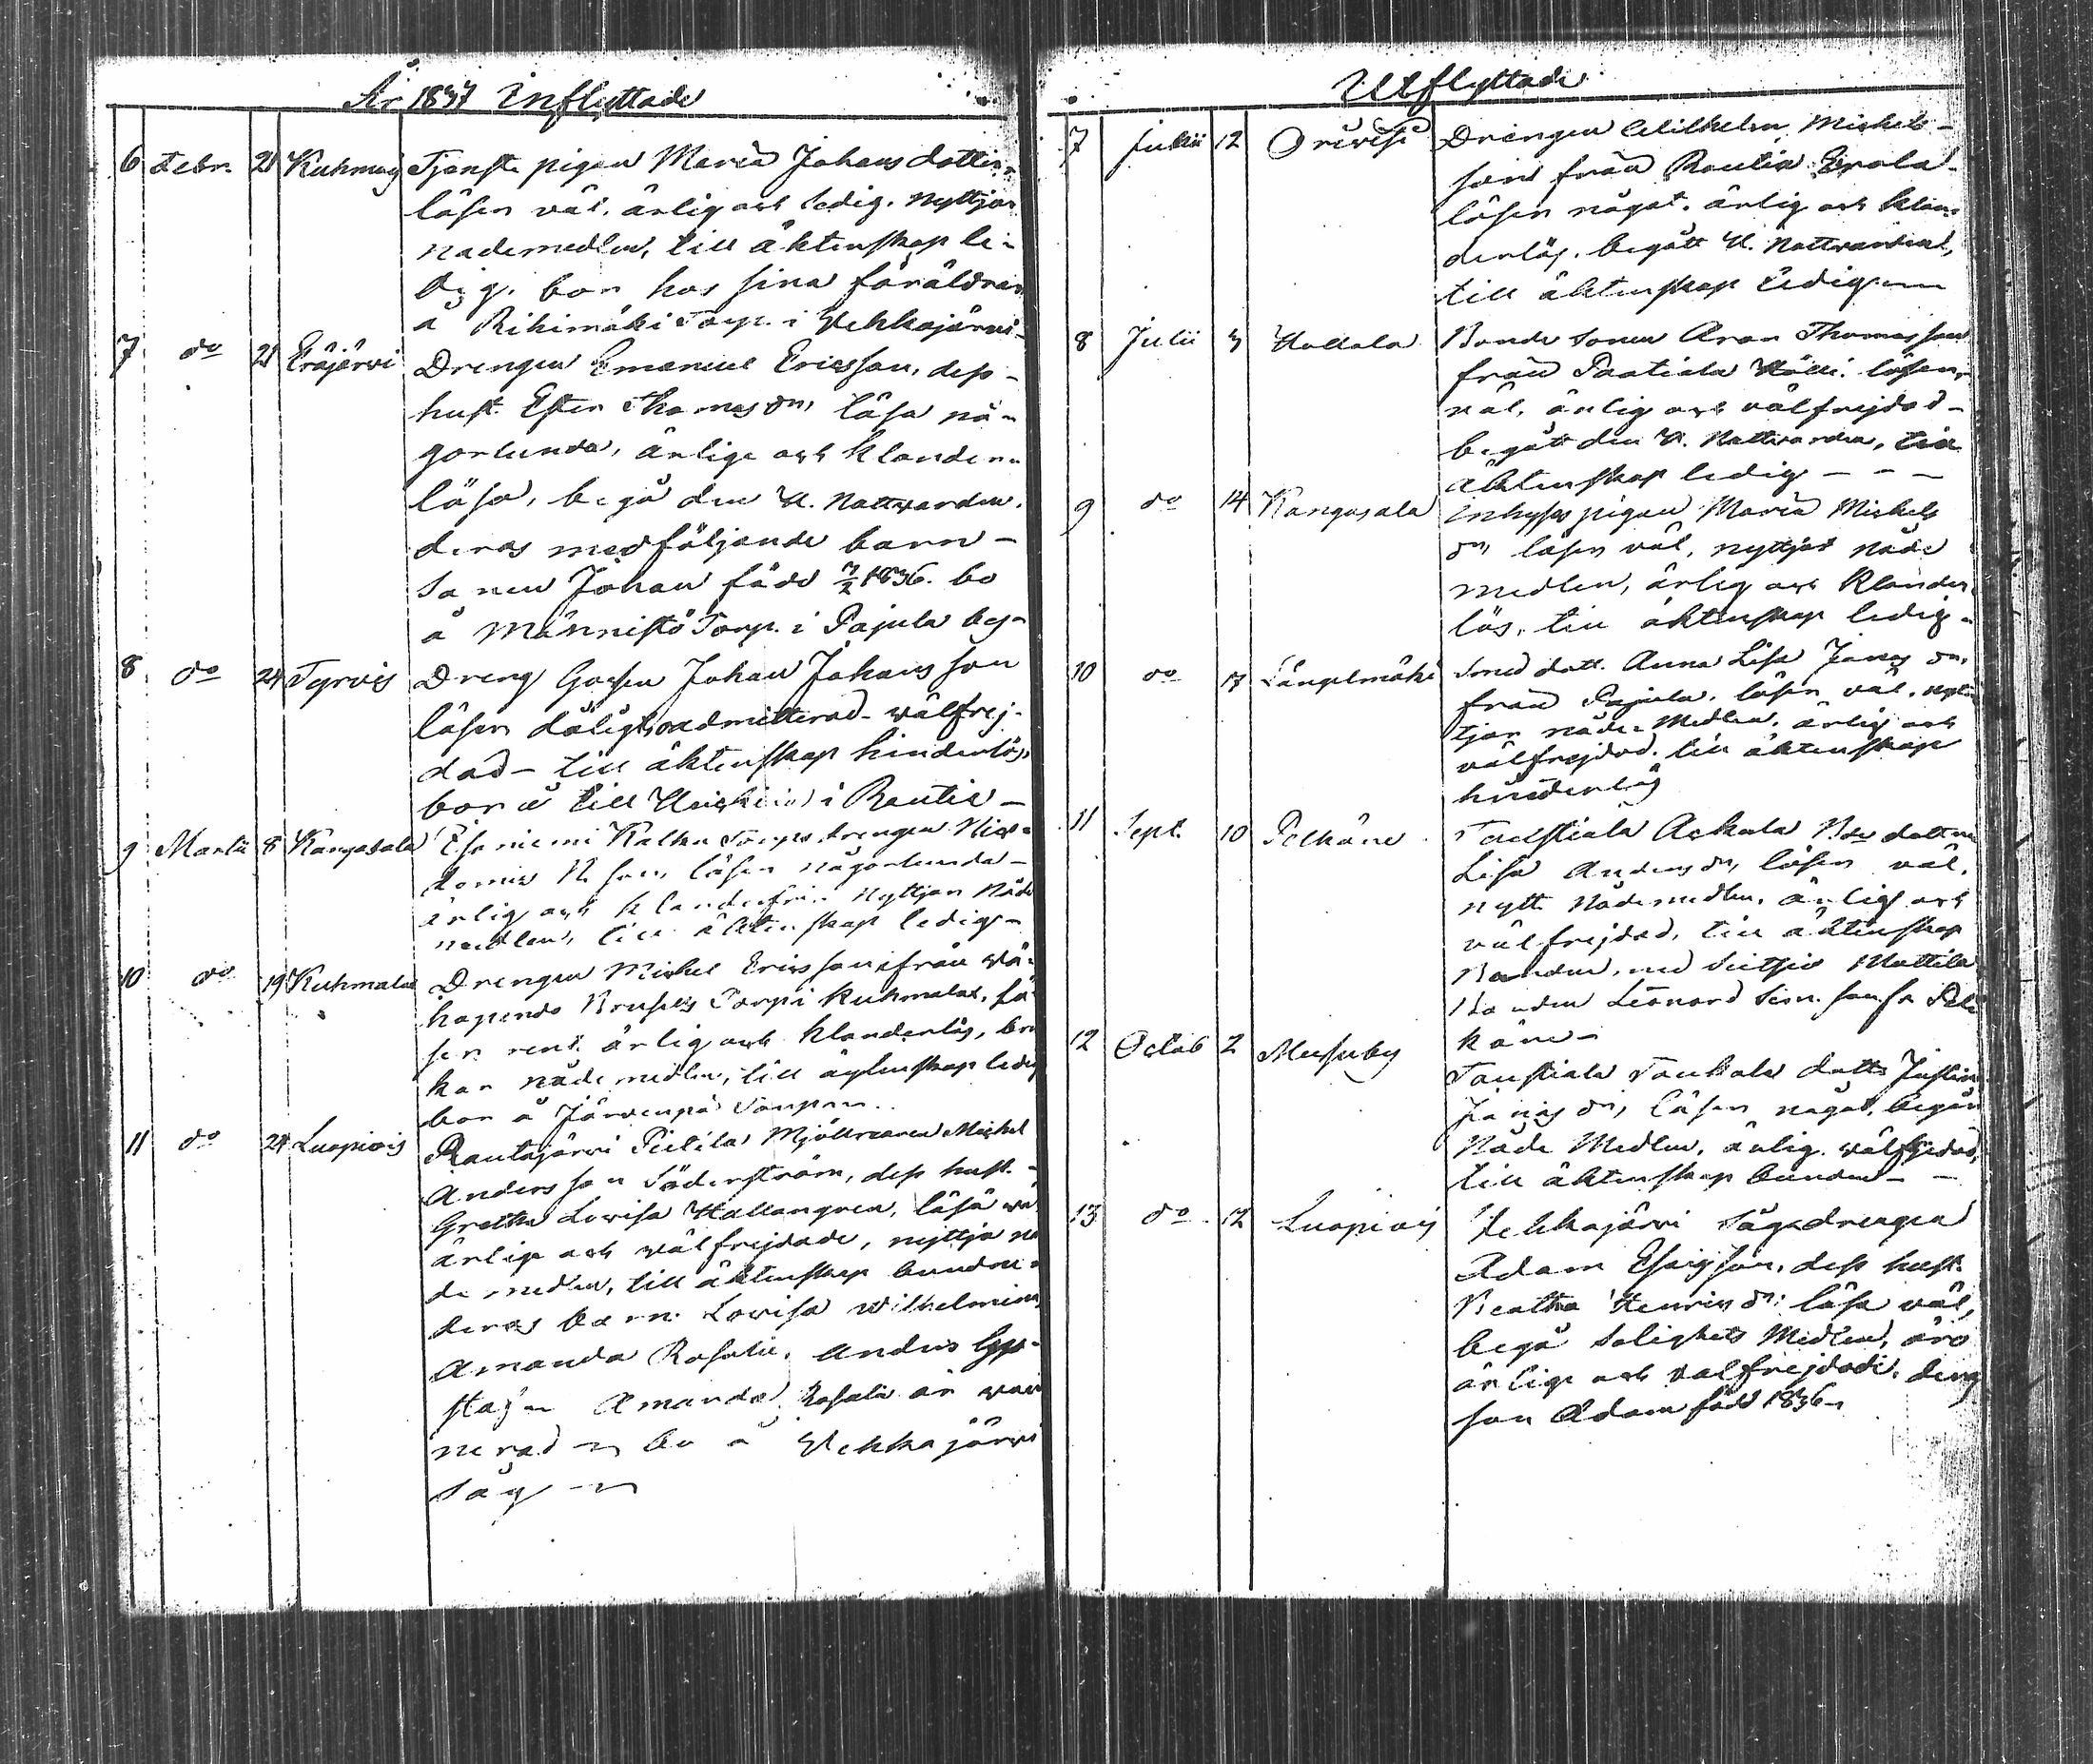 År 1837 Inflyttade
6 Febr. 21 Kuhmois Tjenste pigan Maria Johans dotter
läser väl, ärlig och sedig. Nyttjar
nademedlen, till äktenskap le-
dig. bor hos sina föräldrar
å Rihimäki Torp. i Wehkajärvi
7 do 21 Eräjärvi Drengen Emanuel Ericsson, dess
hust. Ester Thomas dr, läsa nå-
gorlunda, ärlige och klander-
lösa, begå den H. Nattvarden.
deras medföljande barn -
Sonen Johan född 7/2 1836. bo
å Männistö Torp. i Pajula by -
8 do 24 Tyrvis Dreng Gossen Johan Johansson
läser dåligt, admitterad - wälfrej-
dad - till äktenskap hinderlös,
bor å till i Rautia -
9 Martii 8 Kangasala Torps drengen
son, läser någorlunda -
ärlig och klanderfri. Nyttjar Nåde
medlen, till äktenskap ledig -
10 do 19 Kuhmalax Drengen Michel Ericsson ifrån
Torp i Kuhmalax, lä-
ser rent. ärlig och klanderlös, bru
kar nådemedlen, till äktenskap ledig
bor å Järvenpä Torpen.
11 do 24 Luopiois Rautajärvi Pietila Mjölnaren Michel
Andersson Söderström, dess hust. -
Gretha Lovisa Hallongren, läsa wä
ärlige och wälfrejdade, nyttja nå
de medlen, till äktenskap bundne -
deras barn. Lovisa Wilhelmina
Amanda Rosalie, Anders
Amanda Rosalie är vacci
nerad - bo å Wehkajärvi
Såg -
Utflyttade
7 Julii 12 Orivesi Drengen Wilhelm Michels-
son från Rautia Erola -
läser något. ärlig och klan-
derlös. begått H. Nattvarden,
till äktenskap ledig
8 Julii 3 Hollola Bonde sonen Aron Thomasson
från Paatiala Hölli. läser
väl, ärlig och välfrejdad -
begått den H. Nattvarden, till
äktenskap ledig - - -
9 do 14 Kangasala Inhyses pigan Maria Michels
dr, läser väl, nyttjat nåde
medlen, ärlig och klander
lös, till äktenskap ledig -
10 do 17 Längelmäki Smed dott. Anna Lisa Jonas dr,
från Pajula. läser väl, nytt-
tjar nåde Medlen, ärlig och
välfrejdad. till äktenskap
hinderlös
11 Sept. 10 Pelkäne Taustiala Askala Bde dottren
Lisa Anders dr, läser väl,
nytt. Nådemedlen, ärlig och
välfrejdad, till äktenskap
Bunden, med Mattila
Bonden Leonard Sim. son fr. Pel-
käne -
12 Octob 2 Messuby Taustiala Taukala dottr Justina
Jonas dr, läser något, begår
Nåde Medlen, ärlig. välfrejdad,
till äktenskap bunden - -
13 do 12 Luopiois Wehkajärvi Sågdrengen
Adam Esaisson, dess hust.
Beatha Henrics dr: läsa väl,
begå Salighets Medlen, äro
ärlige och välfrejdade. deras
son Adam född 1836 -